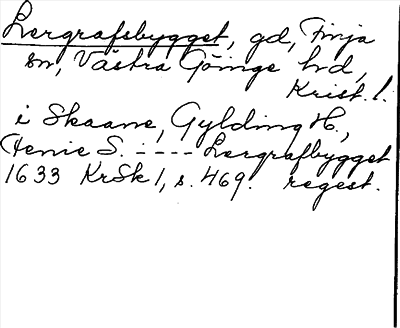 Lergrafsbygget, gd, Finja
sn, Västra Göinge hd,
Krist. l.
i Skaane, Gylding H.,
Jenie S. ---- Lergrafbygget
1633 KrSk 1, s. 469. regest.